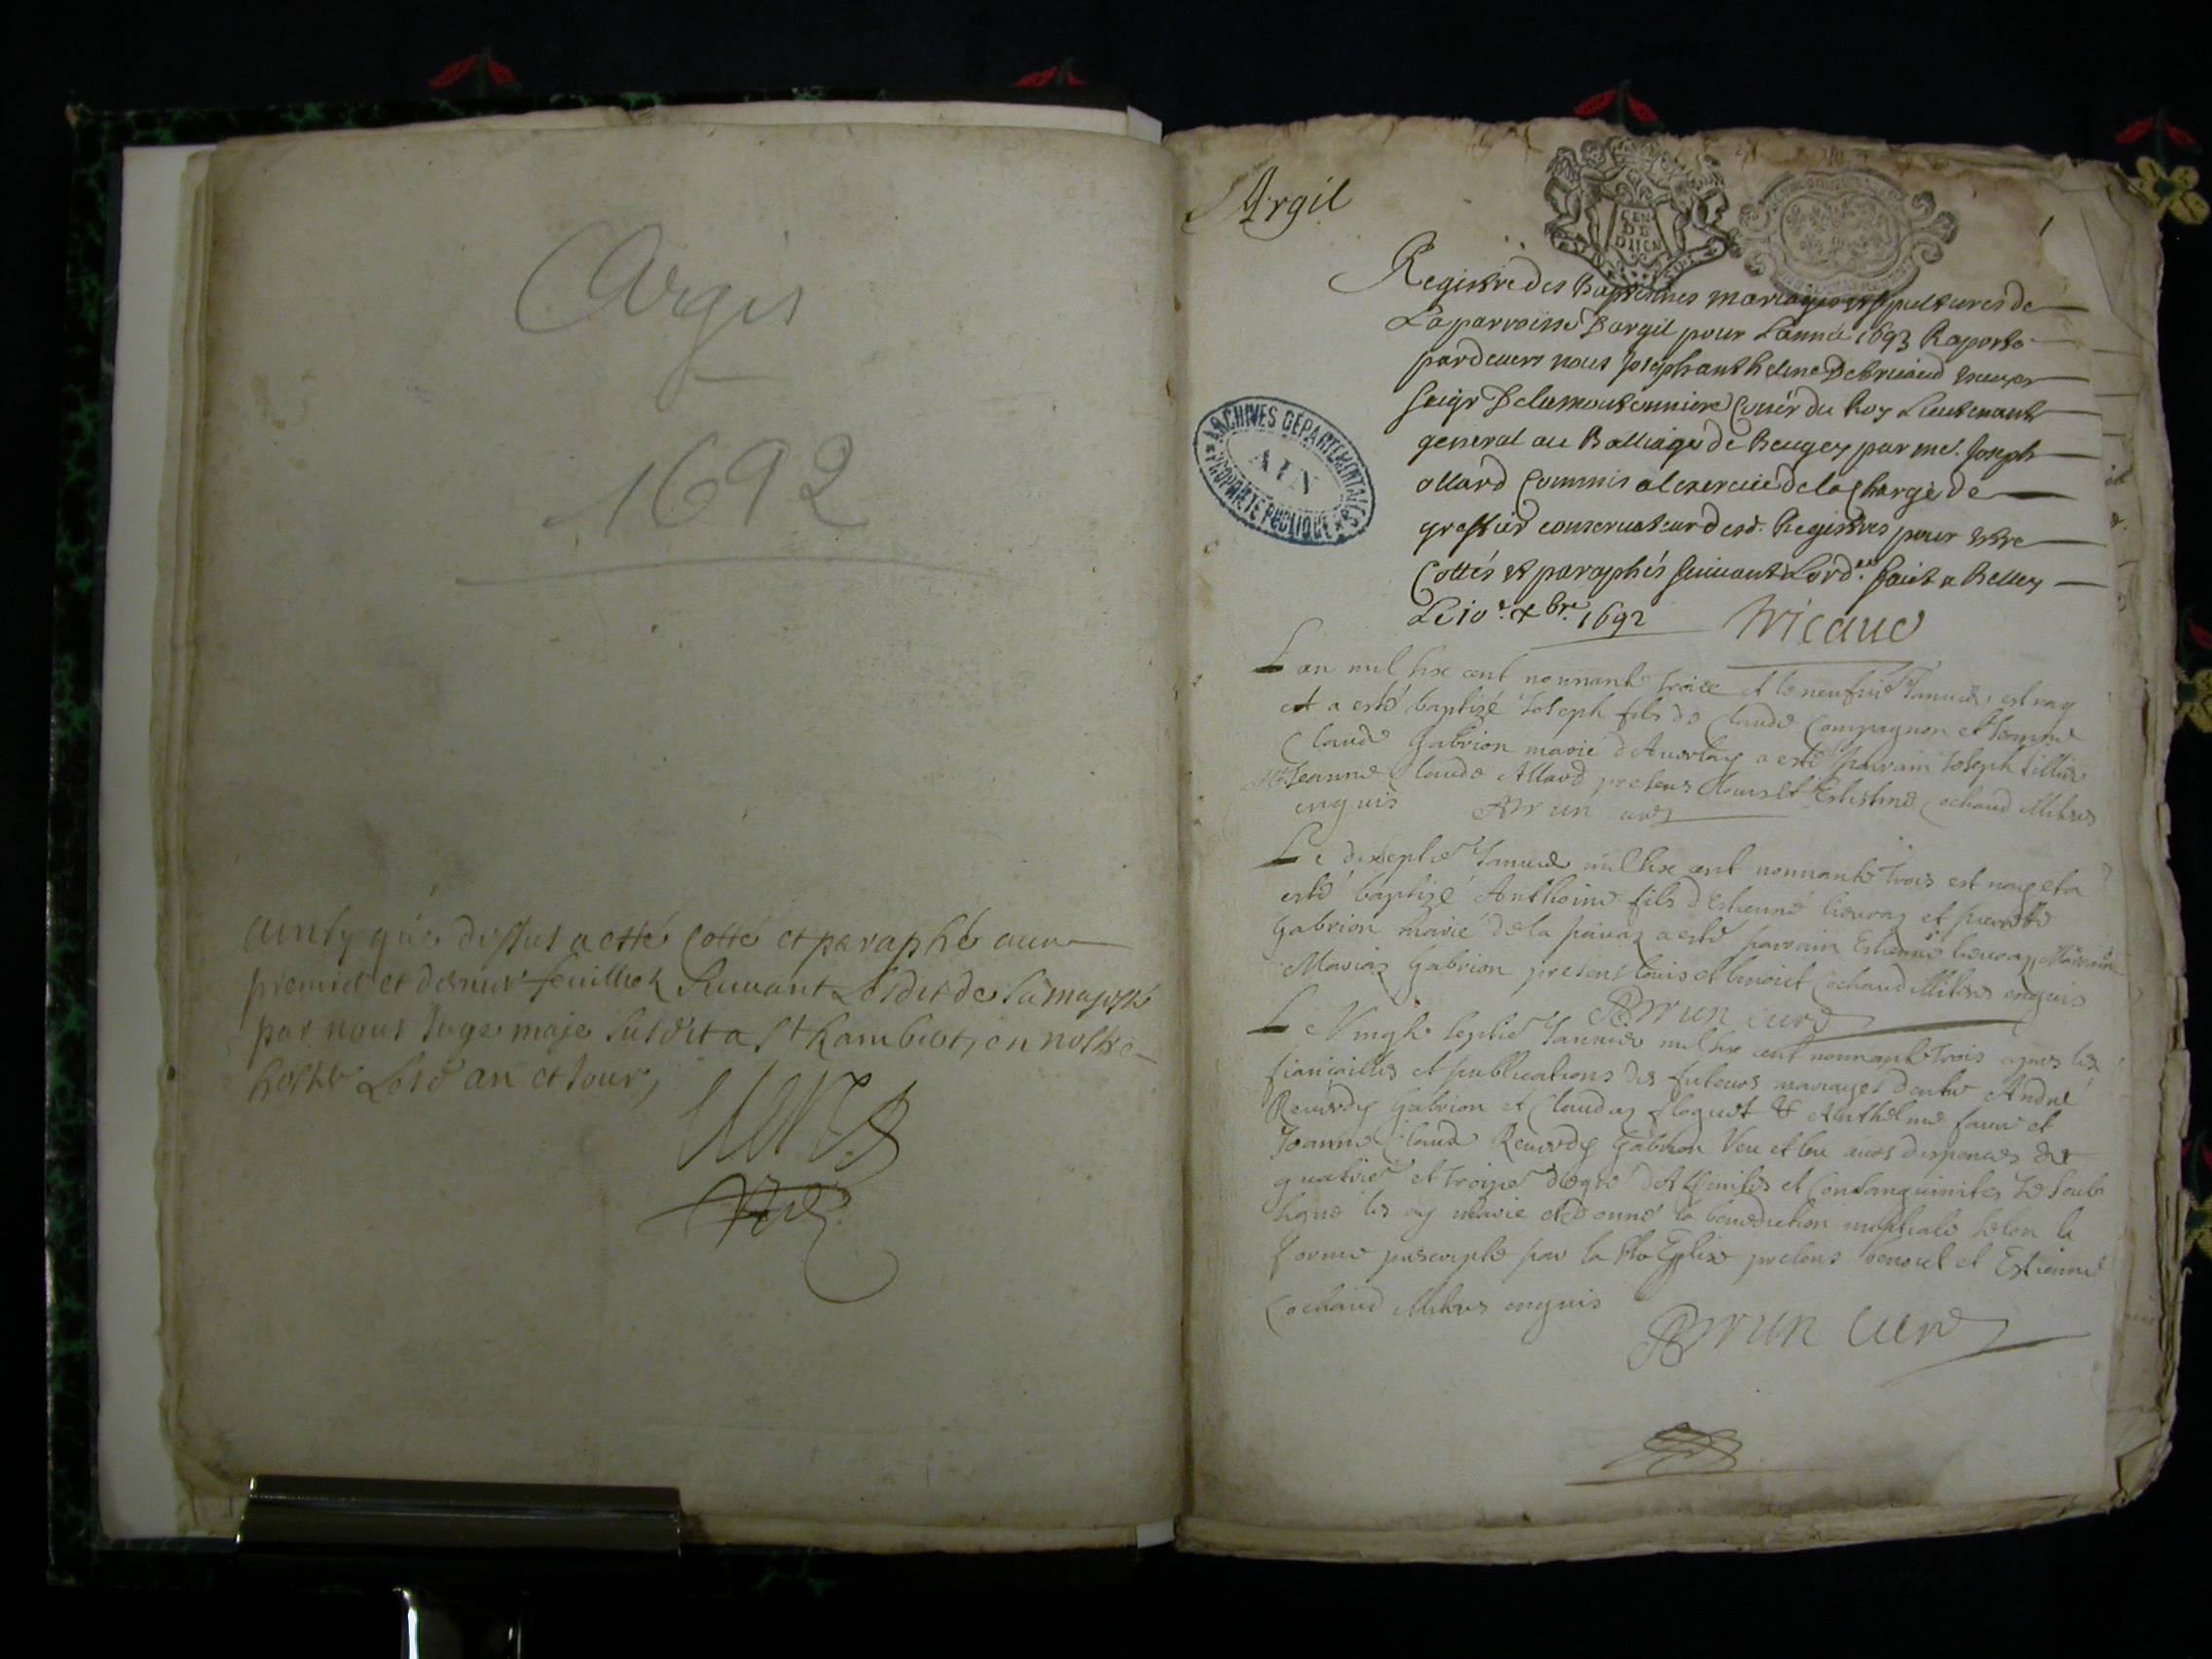 Argis
1692
ainsy que dessus a esté cotté et paraphé aux
premier et dernier feuillet suivant Lesdit de sa majesté
par nous Juge maje susdit a St Rambert, en nostre
hostel Lesd an et Jour,
Argil
1
GEN
DE
DIION
Registre des Baptesmes mariages et sepultures de
La parroisse Dargil pour Lannée 1693 Raporté
pardevers nous Joseph anthelme Debricaud
seigr Delamoutonniere Coner du Roy Lieutenant
general au Balliage de Beugey par me. Joseph
ollard Commis a lexercice de la charge de
greffier conservateur desd. Registres pour estre
Cottés et paraphés suivant Lord. faict a Belley
Le 10e. xbre. 1692 Bricaud
ARCHIVES DÉPARTEMENTALES
AIN
PROPRIÉTÉ PUBLIQUE
Lan mil six cent nonnante troize et le neufvie Janvier est nay
et a esté baptizé Joseph fils de Claude Compagnon et Jeanne
Claude Gabrion marie a esté parrain Joseph
Jeanne Claude Allard presens et Estienne Cochaud
enquis Brun curé
Le dixseptie Janvier mil six cent nonnante trois est nay et a
esté baptizé Anthoine fils d'Estienne et pierrette
Gabrion marié de la a esté parrain Estienne Marraine
Gabrion presens Louis et benoit Cochaud enquis
Brun curé
Le Vingt septie Janvier mil six cent nonnante trois apres les
fiancailles et publications des futeurs mariages dentre André
Reverdy Gabrion et Claudaz et Anthelme favre et
Jeanne Claude Reverdy Gabrion Veu et leu dispences du
quatrie et troizie degré d'Affinités et Consanguinités Je soub
signé les ay marie et donné la benediction nuptiale selon la
forme prescripte par la Ste Eglise presens benoit et Estienne
Cochaud enquis
Brun curé